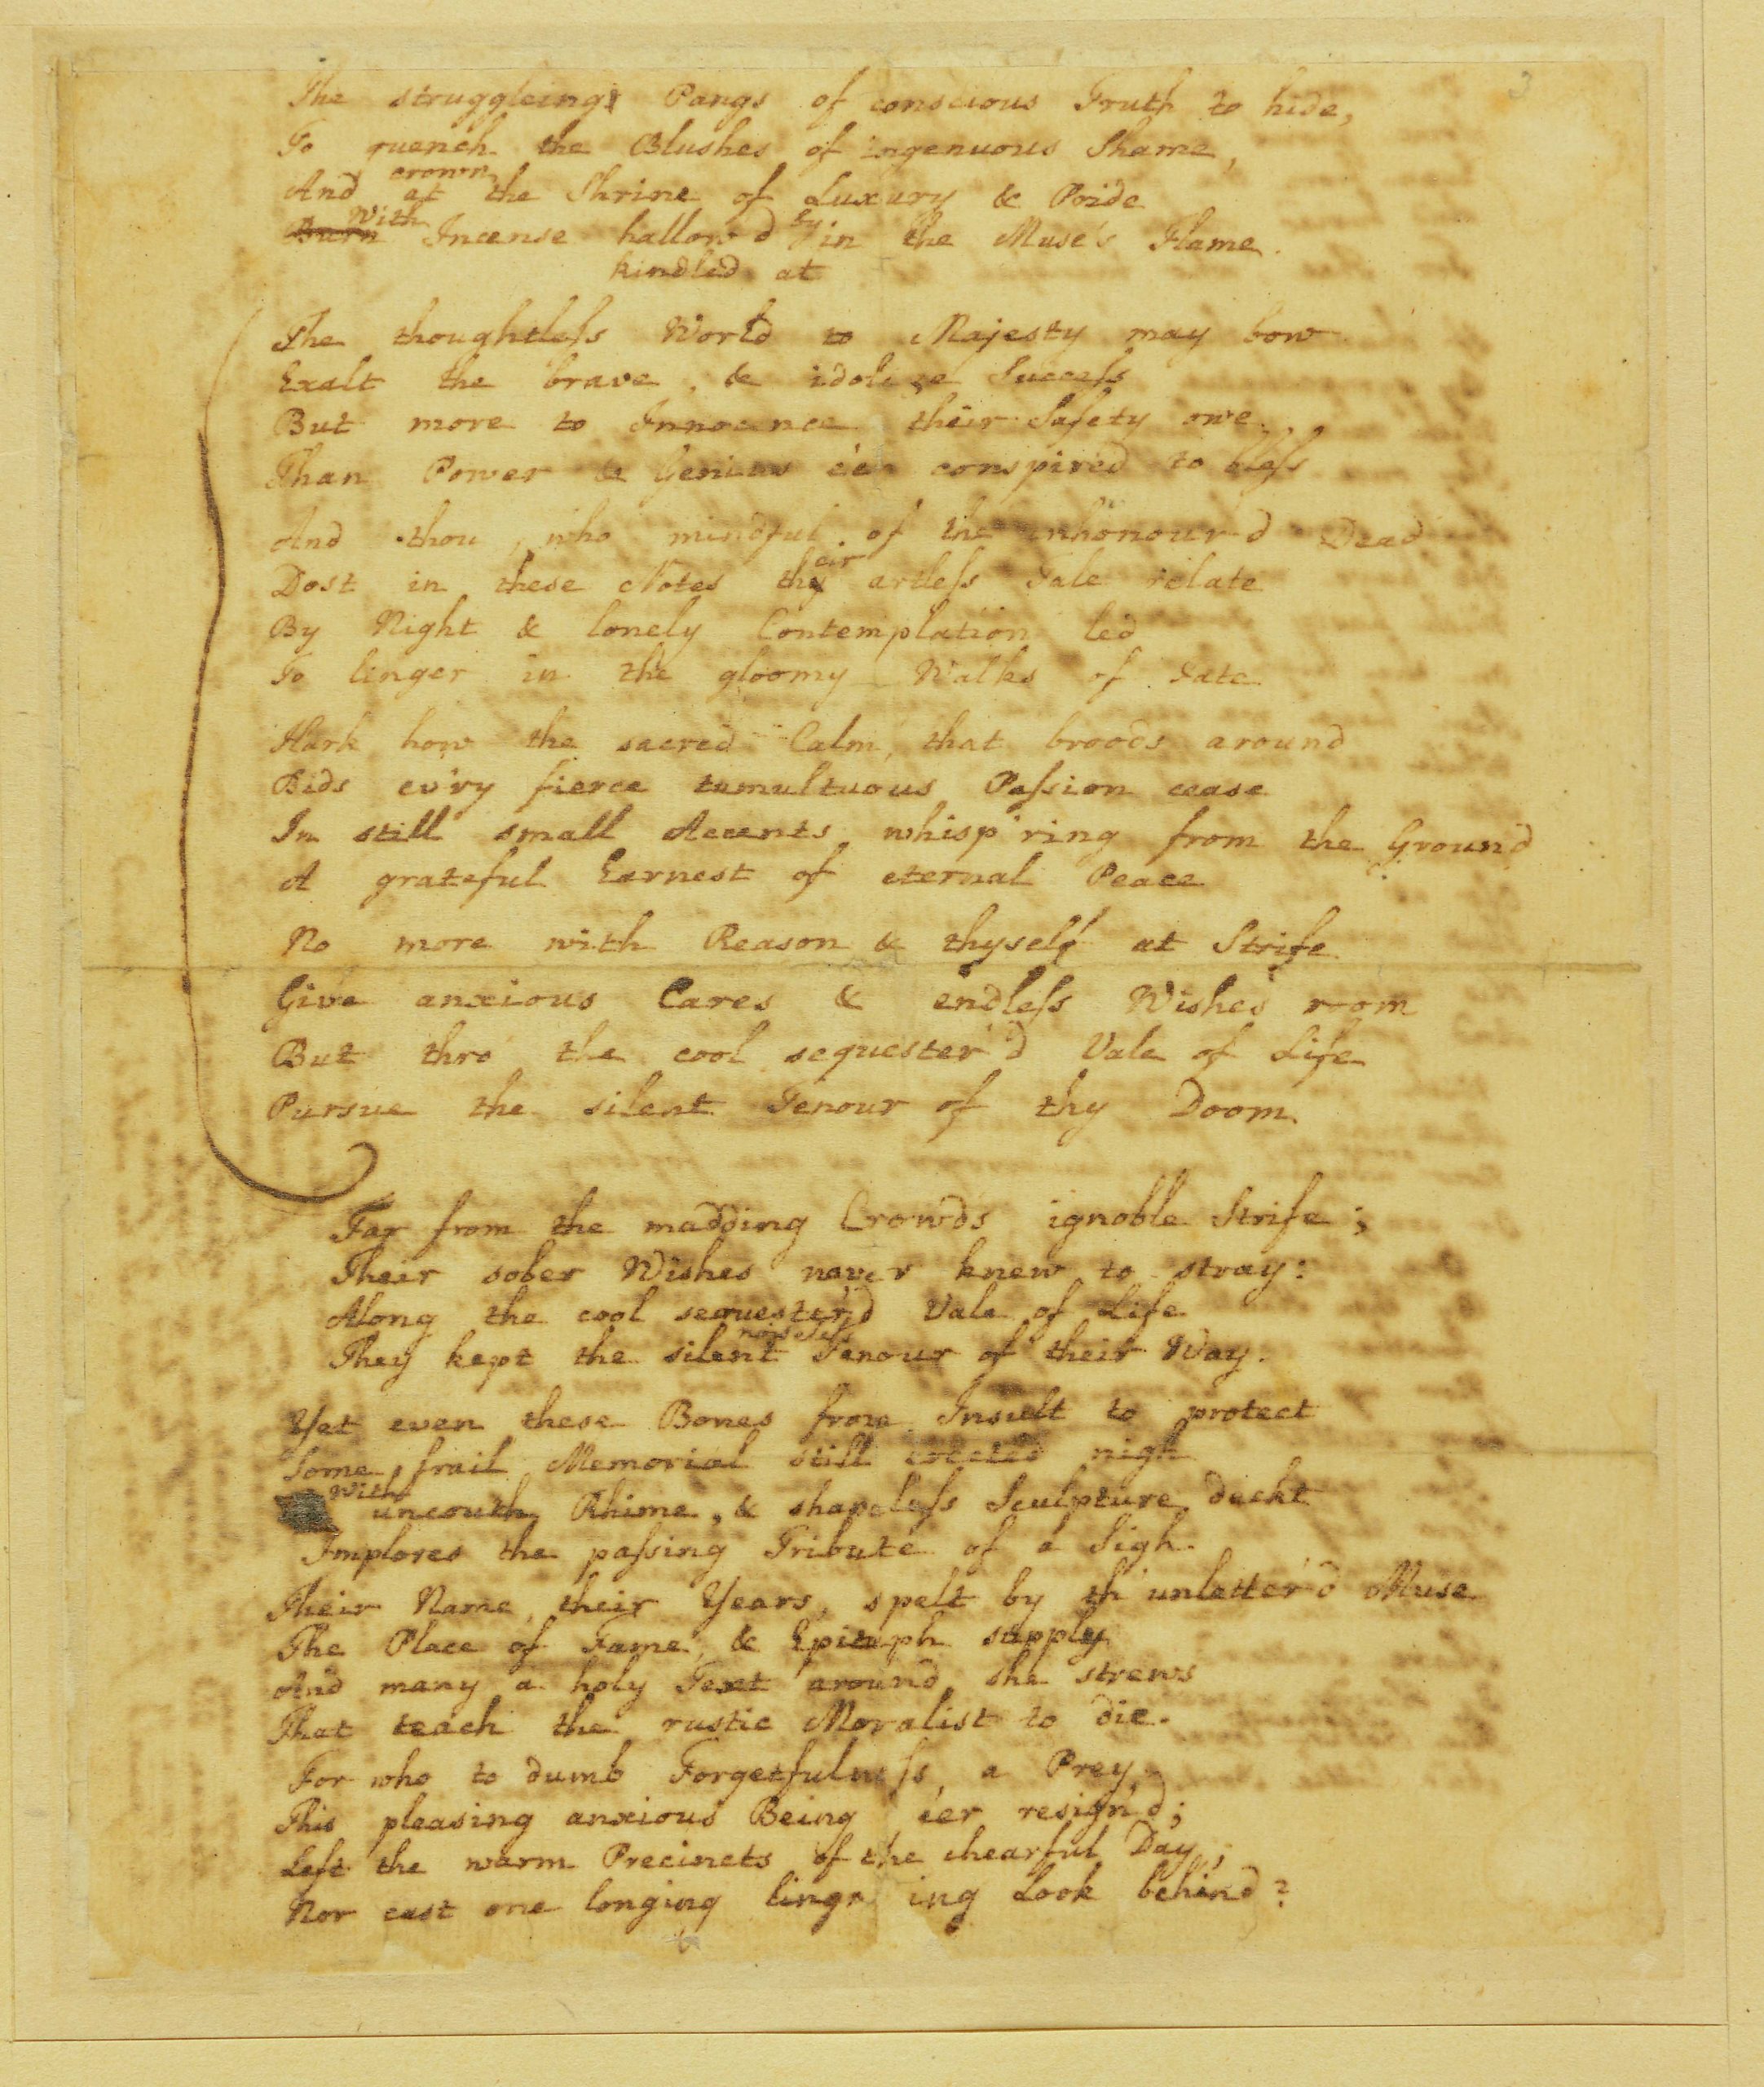 3
The struggleing Pangs of conscious Truth to hide,
To quench the Blushes of ingenuous Shame,
crown
And at the Shrine of Luxury & Pride
With by
Burn Incense hallow'd in the Muse's Flame.
kindled at
The thoughtleſs World to Majesty may bow
Exalt the brave, & idolize Succeſs
But more to Innocence their Safety owe
Than Power & Genius e'er conspired to bleſs
And thou, who mindful of the unhonour'd Dead
eir
Dost in these Notes thy artleſs Tale relate
By Night & lonely Contemplation led
To linger in the gloomy Walks of Fate
Hark how the sacred Calm, that broods around
Bids ev'ry fierce tumultuous Paſsion cease
In still small Accents whisp'ring from the Ground
A grateful Earnest of eternal Peace
No more with Reason & thyself at Strife
Give anxious Cares & endleſs Wishes room
But thro' the cool sequester'd Vale of Life
Pursue the silent Tenour of thy Doom.
Far from the madding Crowd's ignoble Strife;
Their sober Wishes never knew to stray:
Along the cool sequester'd Vale of Life
noiseleſs
They kept the silent Tenour of their Way.
Yet even these Bones from Insult to protect
Some frail Memorial still erected nigh
With
uncouth Rhime, & shapeleſs Sculpture deckt
Implores the paſsing Tribute of a Sigh.
Their Name, their Years, spelt by th' unletter'd Muse
The Place of Fame, & Epitaph supply
And many a holy Text around she strews
That teach the rustic Moralist to die.
For who to dumb Forgetfulneſs, a Prey,
This pleasing anxious Being e'er resign'd;
Left the warm Precincts of the chearful Day,
Nor cast one longing ling'ring Look behind?